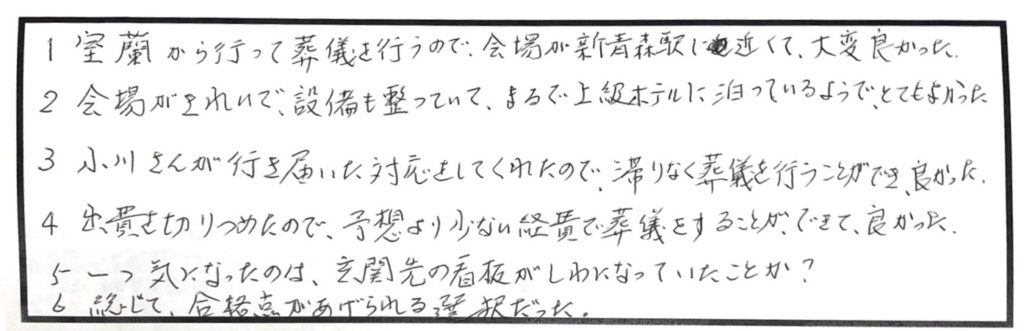 1 室蘭から行って葬儀を行うので、会場が新青森駅に近くて、大変良かった.
2 会場がきれいで、設備も整っていて、まるで上級ホテルに泊っているようで、とてもよかった
3 小川さんが行き届いた対応をしてくれたので、滞りなく葬儀を行うことができ、良かった.
4 出費を切りつめたので、予想より少ない経費で葬儀をすることが、できて、良かった.
5 一つ気になったのは、玄関先の看板がしわになっていたことか?
6 総じて、合格点があげられる選択だった。